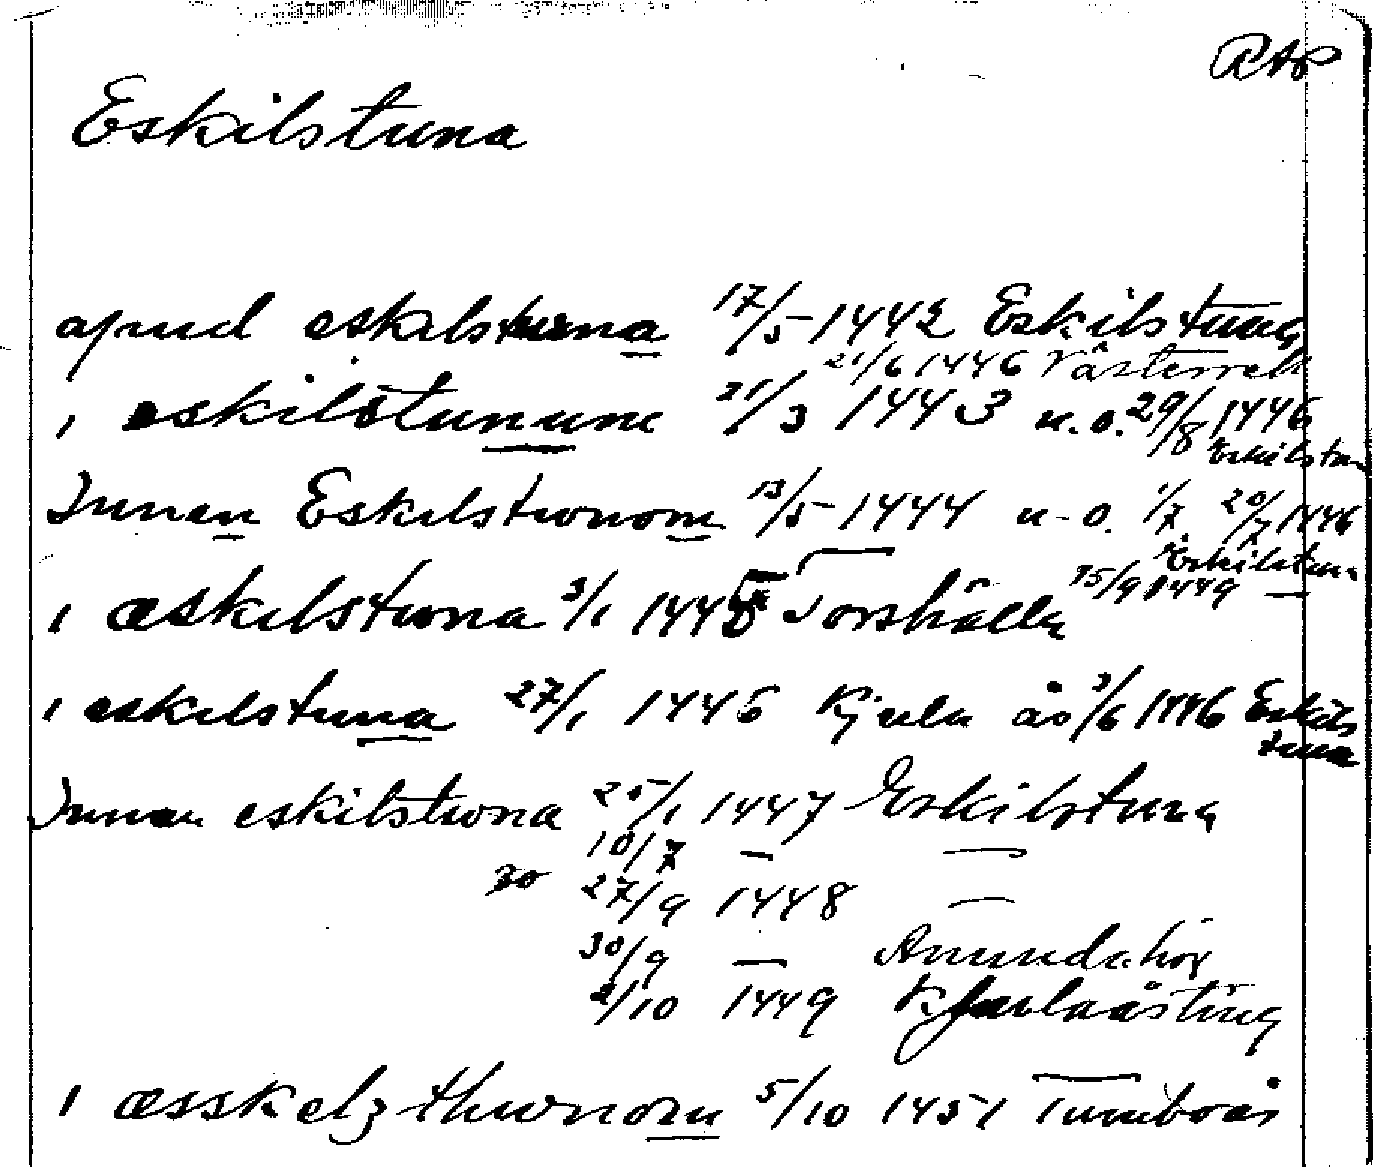 RAP
Eskilstuna
apud eskilstuna 17/5 1442 Eskilstuna
21/6 1446 Västerrek
i eskilstunum 21/3 1443 u.o. 29/8 1446
Eskilstuna
Innan Eskilstunom 13/5 1444 u.o. 1/7 20/7 1446
Eskilstuna
i æskilstuna 3/1 1445 Torshälla 15/9 1449 —
i eskilstuna 27/1 1446 Kjula ås 3/6 1446 Eskils
tuna
Innan eskilstuna 25/1 1447 Eskilstuna
10/7 — —
27/9 1448 —
30/9 — Anundshög
2/10 1449 Kjulaåsting
i æsskelzthunom 5/10 1451 Tumboås